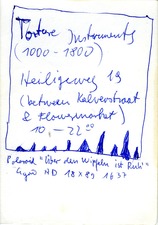 Torture Instruments
(1000-1800)
Heiligeweg 19
(between Kalverstraat
& Flowermarket)
10,-22⁰⁰
Polaroid "Über den Wipfeln ist Ruh"
18x89 1637